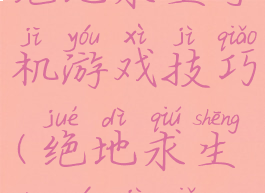 jī yóu xì jì qiǎo
机游戏技巧
jué dì qiú shēng
(绝地求生